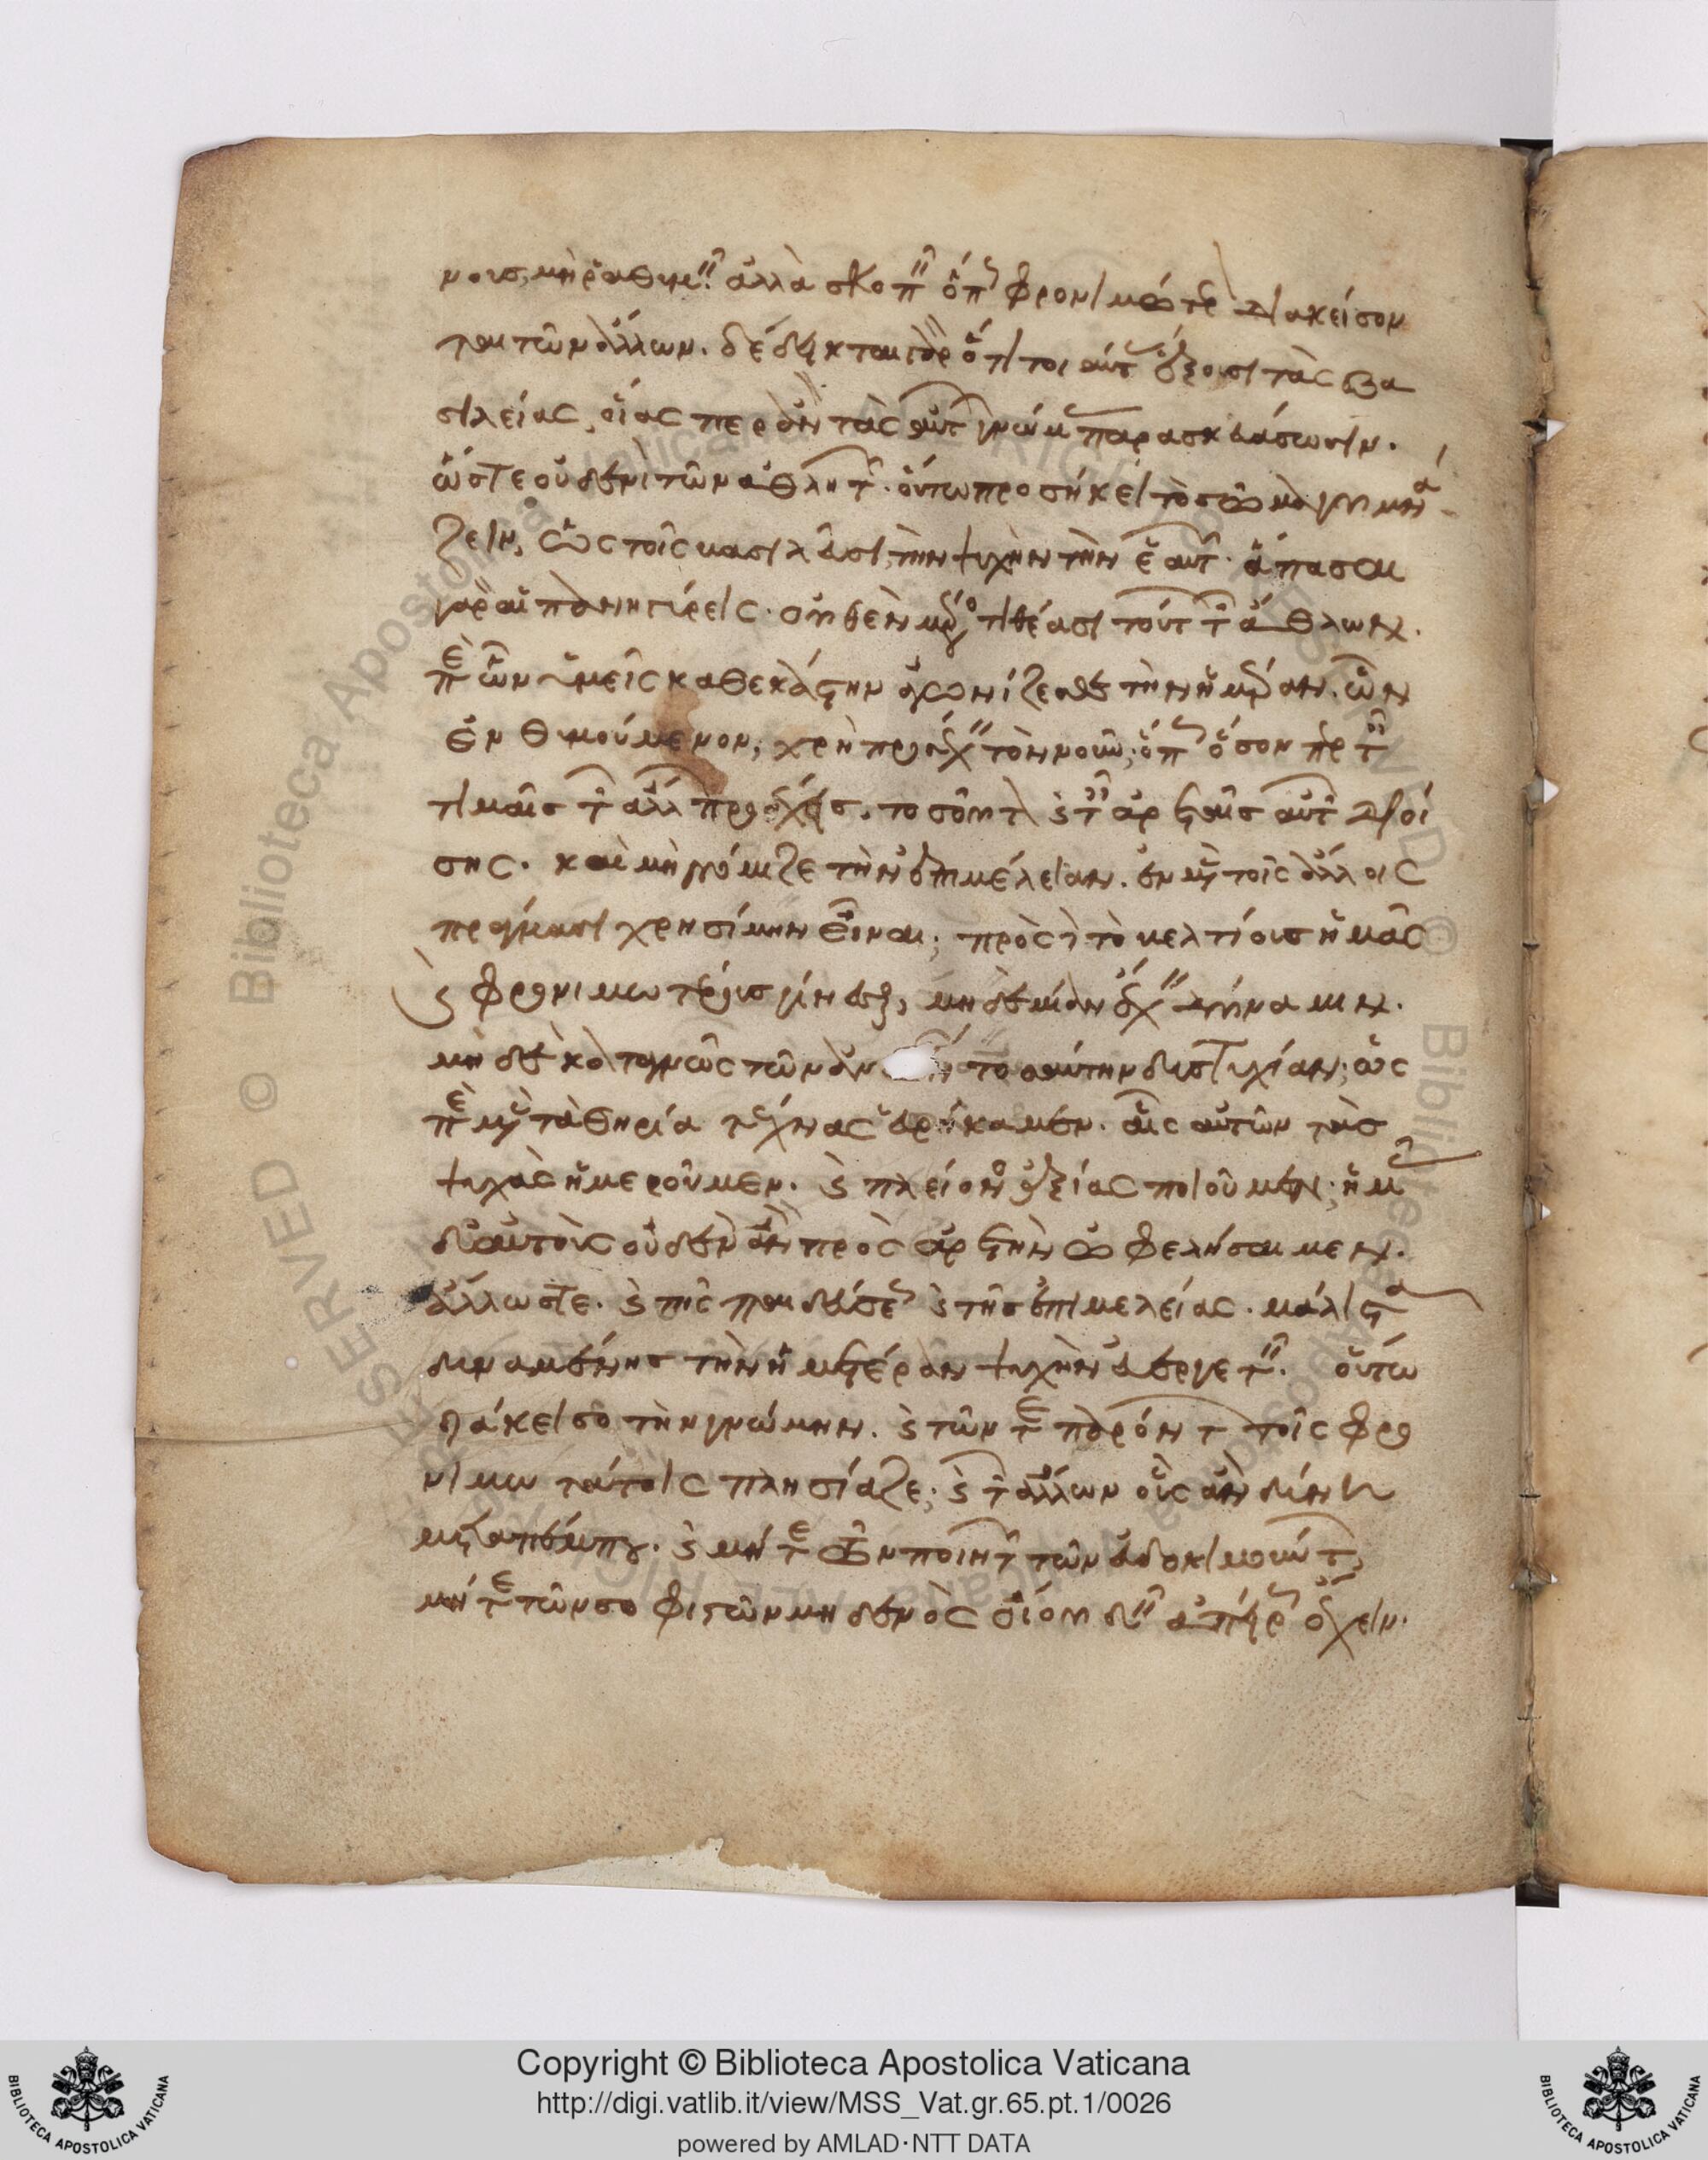 μους, μὴ ῥαθυμεῖν· ἀλλὰ σκοπεῖν ὅπως φρονιμώτερον διακείσον
ται τῶν ἄλλων. δέδεικται γὰρ ὅτι τοιαύτας ἕξουσι τὰς βα
σιλείας, οἵας περ ἂν τὰς αὐτῶν γνώμας παρασκευάσωσιν.
ὥστε οὐδενὶ τῶν ἀθλητῶν. οὕτω προσήκει τὸ σῶμα γυμνά
ζειν, ὡς τοῖς βασιλεῦσι, τὴν ψυχὴν τὴν ἑαυτῶν. ἅπασαι
γὰρ αἱ πανηγύρεις· οὐδὲν μέρος τιθέασι τούτων τῶν ἄθλων.
περὶ ὧν ὑμεῖς καθ' ἑκάστην ἀγωνίζεσθε τὴν ἡμέραν. ὧν
ἐνθυμούμενον, χρὴ προσέχειν τὸν νοῦν, ὅπως ὅσον περ ταῖς
τιμαῖς τῶν ἄλλων προέχεις. τοσοῦτον καὶ ταῖς ἀρεταῖς αὐτῶν διοί
σης. καὶ μὴ νόμιζε τὴν ἐπιμέλειαν. ἐν μὲν τοῖς ἄλλοις
πράγμασι χρησίμην εἶναι, πρὸς δὲ τὸ βελτίους ἡμᾶς
καὶ φρονιμωτέρους γίνεσθαι, μηδεμίαν ἔχειν δύναμιν.
μὴ δὲ καταγνῶς τῶν ἀν τοσαύτην δυστυχίαν, ὡς
περὶ μὲν τὰ θηρία τέχνας εὑρήκαμεν. αἷς αὐτῶν τὰς
ψυχὰς ἡμεροῦμεν. καὶ πλείονος ἀξίας ποιοῦμεν, ἡμᾶς
δ' αὐτοὺς οὐδὲν ἂν πρὸς ἀρετὴν ὠφελήσαιμεν.
ἀλλ' ὥστε. καὶ τῆς παιδεύσεως καὶ τῆς ἐπιμελείας. μάλιστα
δυναμένης τὴν ἡμετέραν ψυχὴν εὐεργετεῖν. οὕτω
διάκεισο τὴν γνώμην. καὶ τῶν τε παρόντων τοῖς φρο
νιμωτάτοις πλησίαζε, καὶ τῶν ἄλλων οὓς ἂν δύνῃ
μεταπέμπου. καὶ μήτε τῶν ποιητῶν τῶν εὐδοκιμούντων,
μήτε τῶν σοφιστῶν μηδενὸς οἴου δεῖν ἀπείρως ἔχειν.
Copyright © Biblioteca Apostolica Vaticana
http://digi.vatlib.it/view/MSS_Vat.gr.65.pt.1/0026
powered by AMLAD·NTT DATA